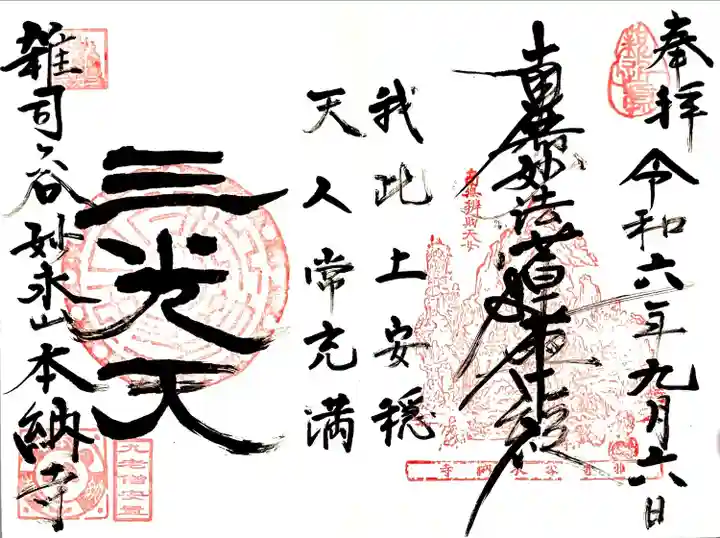 奉拝 令和六年九月六日
南無妙法蓮華経
我此土安穏
天人常充満
三光天
雑司ヶ谷 妙永山 本納寺
南無辨財天女